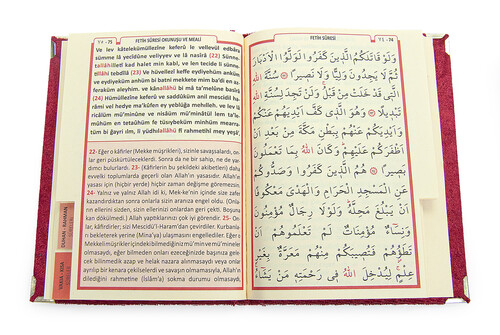 ٧٥ - 75 FETİH SÛRESİ OKUNUŞU VE MEALİ
Ve lev kâtelekümüllezine keferû le vellevül edbâra
sümme lâ yecidûne veliyyev ve lâ nasîrâ (22) Sünne-
tallâhilletî kad halet min kabl, ve len tecide li sünne-
tillâhi tebdîlâ (23) Ve hüvellezî keffe eydiyehüm anküm
ve eydiyeküm anhüm bi batni mekkete mim ba'di en ez-
feraküm aleyhim. ve kânallâhü bi mâ ta'melûne basîrâ
(24) Hümüllezîne keferû ve saddûküm anil mescidil ha-
râmi vel hedye ma'kûfen ey yeblüğa mehılleh. ve lev lâ
ricâlüm mü'minûne ve nisâüm mü'minâtül lem ta'le-
mûhüm en tetaûhüm fe tüsıybeküm minhüm mearra-
tüm bi ğayri ılm, li yüdhılallâhü fî rahmetihî mey yeşâ',
22- Eğer o kâfirler (Mekke müşrikleri), sizinle savaşsalardı, on-
lar geri püskürtüleceklerdi. Sonra da ne bir sahip, ne de yar-
dımcı bulurlardı. 23- (Kâfirlerin bu şekildeki akıbetleri) daha
evvelki toplumlarda geçerli olan Allah'ın yasasıdır. Allah'ın
yasası için (hiçbir yerde) hiçbir zaman değişme göremezsin.
24- Yalnız ve yalnız Allah idi ki, Mekke'nin içinde size zafer
kazandırdıktan sonra onlarla sizin aranıza engel oldu. (Onla-
rın ellerini sizden, sizin ellerinizi onlardan geri çekti. Boşuna
kan dökülmedi.) Allah yaptıklarınızı çok iyi görendir. 25- On-
lar, kâfirdirler; sizi Mescidü'l-Haram'dan çevirdiler. Kurbanla-
rı bekleterek yerine (Mina'ya) ulaşmasını engellediler. Eğer o
Mekke müşrikleri içinde bilmediğiniz mü'min ve mü'mineler
olmasaydı, eğer bilmeden onları ezeceğinizde başınıza gele-
cek bilinmedik azap ve helak nazara alınmasaydı veya onlar
ayrılıp bir kenara çekilselerdi ve savaşın olmamasıyla, Allah'ın
dilediğini rahmetine (İslâm'a) sokma durumu olmasaydı,
DUHAN - RAHMAN
VAKIA - NEBE
FETİH SÛRESİ ٧٤ - 74
وَلَوْ قَاتَلَكُمُ الَّذِينَ كَفَرُوا لَوَلَّوُا الْاَدْبَارَ
ثُمَّ لَا يَجِدُونَ وَلِيًّا وَلَا نَصِيرًا سُنَّةَ اللّٰهِ
الَّتِي قَدْ خَلَتْ مِنْ قَبْلُ وَلَنْ تَجِدَ لِسُنَّةِ اللّٰهِ
تَبْدِيلًا وَهُوَ الَّذِي كَفَّ اَيْدِيَهُمْ عَنْكُمْ
وَاَيْدِيَكُمْ عَنْهُمْ بِبَطْنِ مَكَّةَ مِنْ بَعْدِ اَنْ
اَظْفَرَكُمْ عَلَيْهِمْ وَكَانَ اللّٰهُ بِمَا تَعْمَلُونَ
بَصِيرًا هُمُ الَّذِينَ كَفَرُوا وَصَدُّوكُمْ
عَنِ الْمَسْجِدِ الْحَرَامِ وَالْهَدْيَ مَعْكُوفًا
اَنْ يَبْلُغَ مَحِلَّهُ وَلَوْلَا رِجَالٌ مُؤْمِنُونَ
وَنِسَاءٌ مُؤْمِنَاتٌ لَمْ تَعْلَمُوهُمْ اَنْ
تَطَؤُهُمْ فَتُصِيبَكُمْ مِنْهُمْ مَعَرَّةٌ بِغَيْرِ
عِلْمٍ لِيُدْخِلَ اللّٰهُ فِي رَحْمَتِهِ مَنْ يَشَاءُ